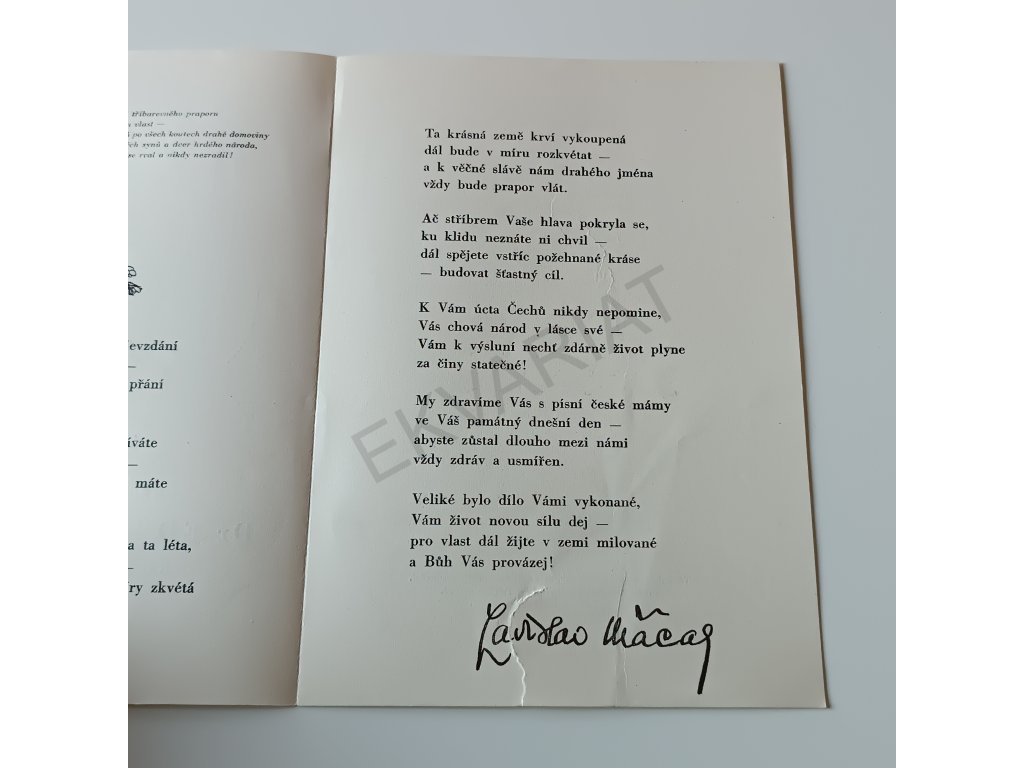 tříbarevného praporu
vlast —
po všech koutech drahé domoviny
synů a dcer hrdého národa,
se rval a nikdy nezradil!
evzdání
—
přání
íváte
—
máte
a ta léta,
—
ry zkvétá
Ta krásná země krví vykoupená
dál bude v míru rozkvétat —
a k věčné slávě nám drahého jména
vždy bude prapor vlát.
Ač stříbrem Vaše hlava pokryla se,
ku klidu neznáte ni chvil —
dál spějete vstříc požehnané kráse
— budovat šťastný cíl.
K Vám úcta Čechů nikdy nepomine,
Vás chová národ v lásce své —
Vám k výsluní nechť zdárně život plyne
za činy statečné!
My zdravíme Vás s písní české mámy
ve Váš památný dnešní den —
abyste zůstal dlouho mezi námi
vždy zdráv a usmířen.
Veliké bylo dílo Vámi vykonané,
Vám život novou sílu dej —
pro vlast dál žijte v zemi milované
a Bůh Vás provázej!
Ladislav
EKVARIAT